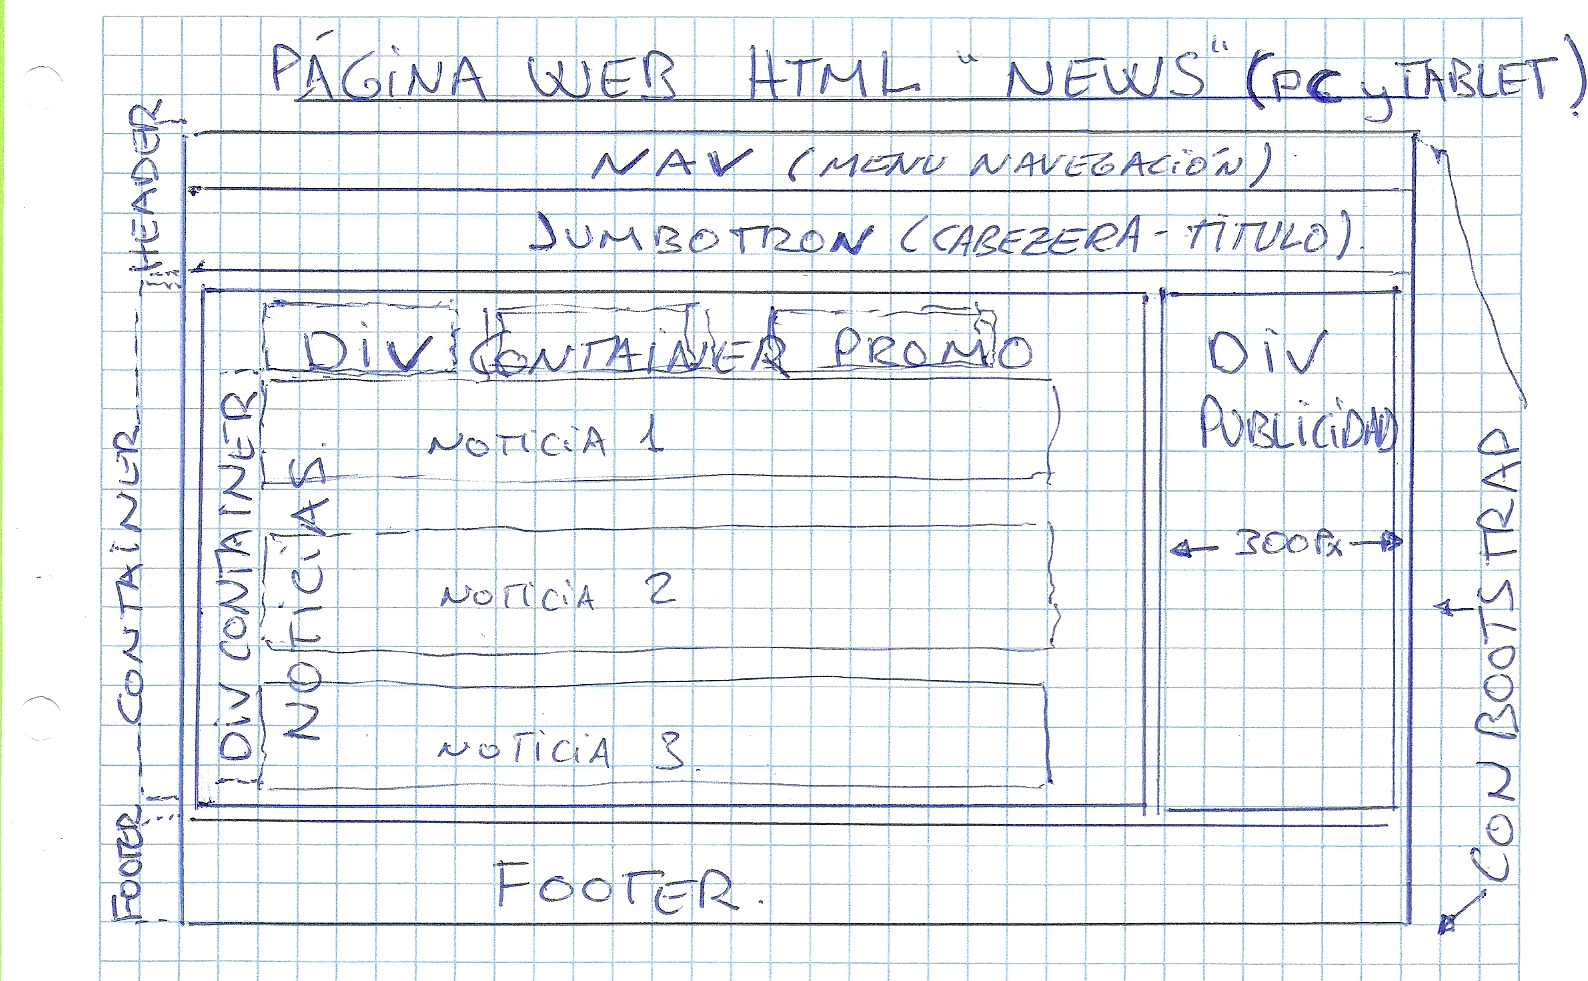 PÁGINA WEB HTML "NEWS" (PC y TABLET)
HEADER
NAV (MENU NAVEGACIÓN).
JUMBOTRON (CABEZERA - TÍTULO).
CONTAINER
DIV CONTAINER PROMO
DIV CONTAINER
NOTICIAS.
NOTICIA 1
NOTICIA 2
NOTICIA 3.
DIV
PUBLICIDAD
300Px
CON BOOTSTRAP
FOOTER
FOOTER.